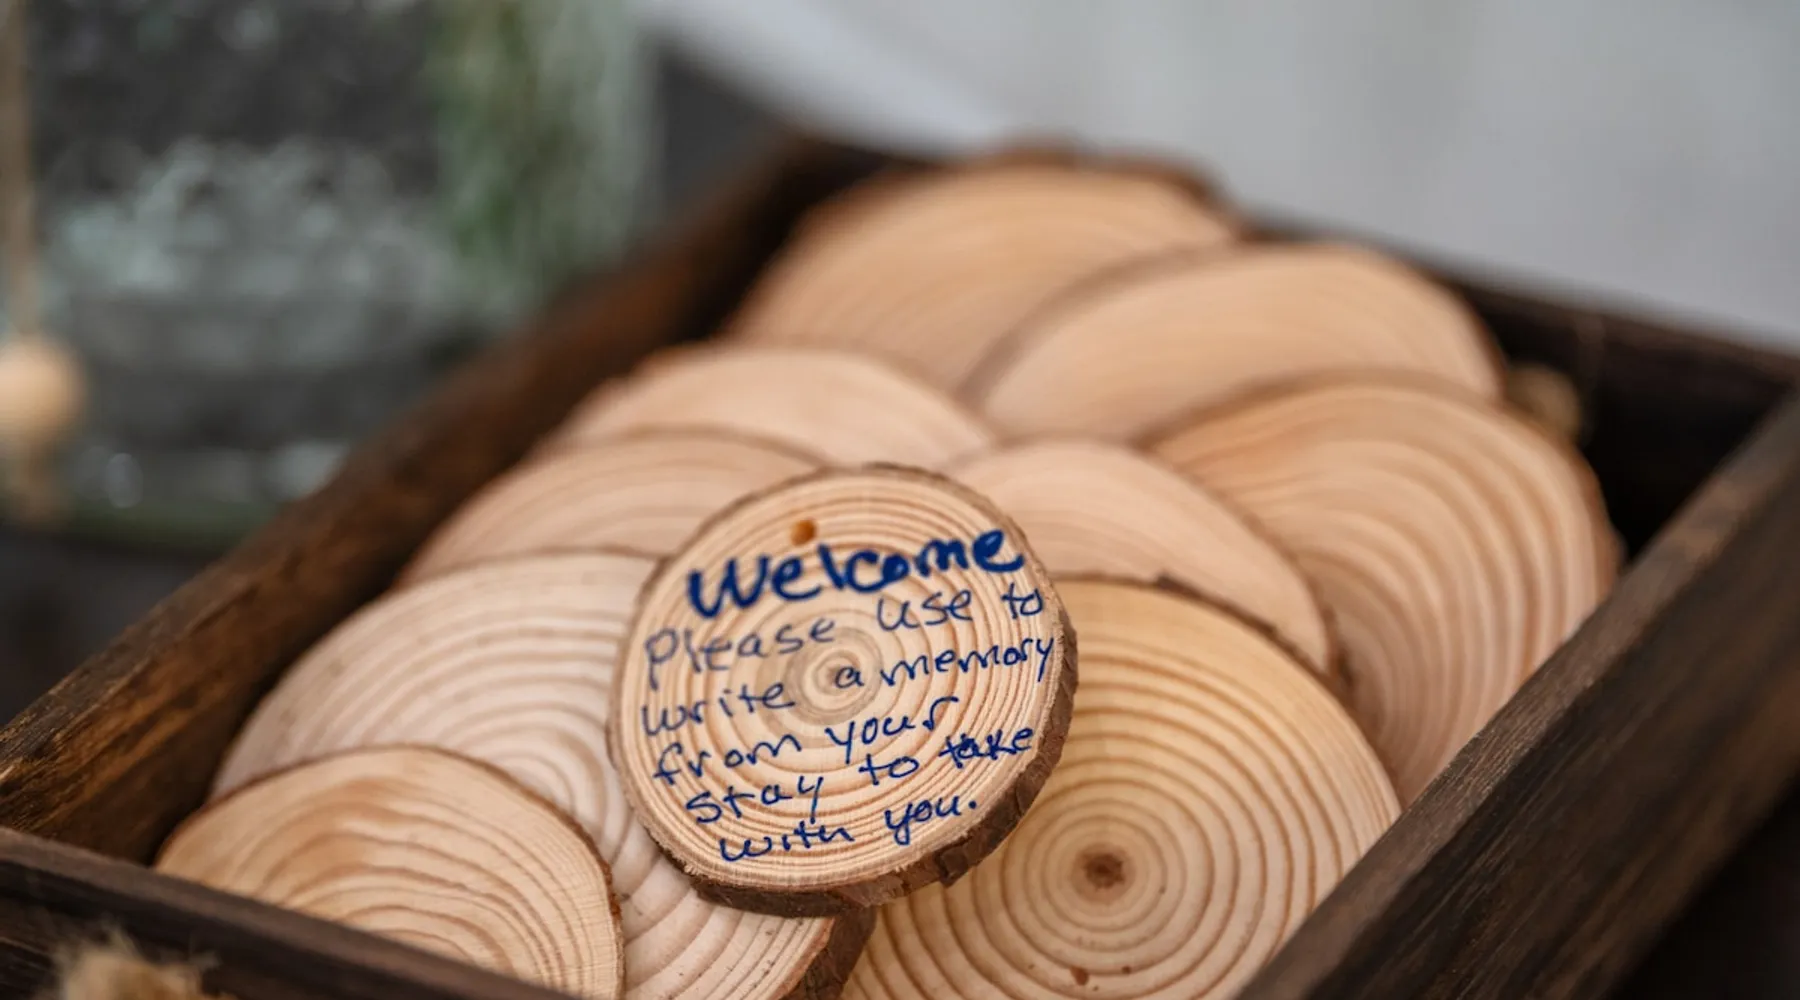 Welcome
Please use to
write a memory
from your
stay to take
with you.